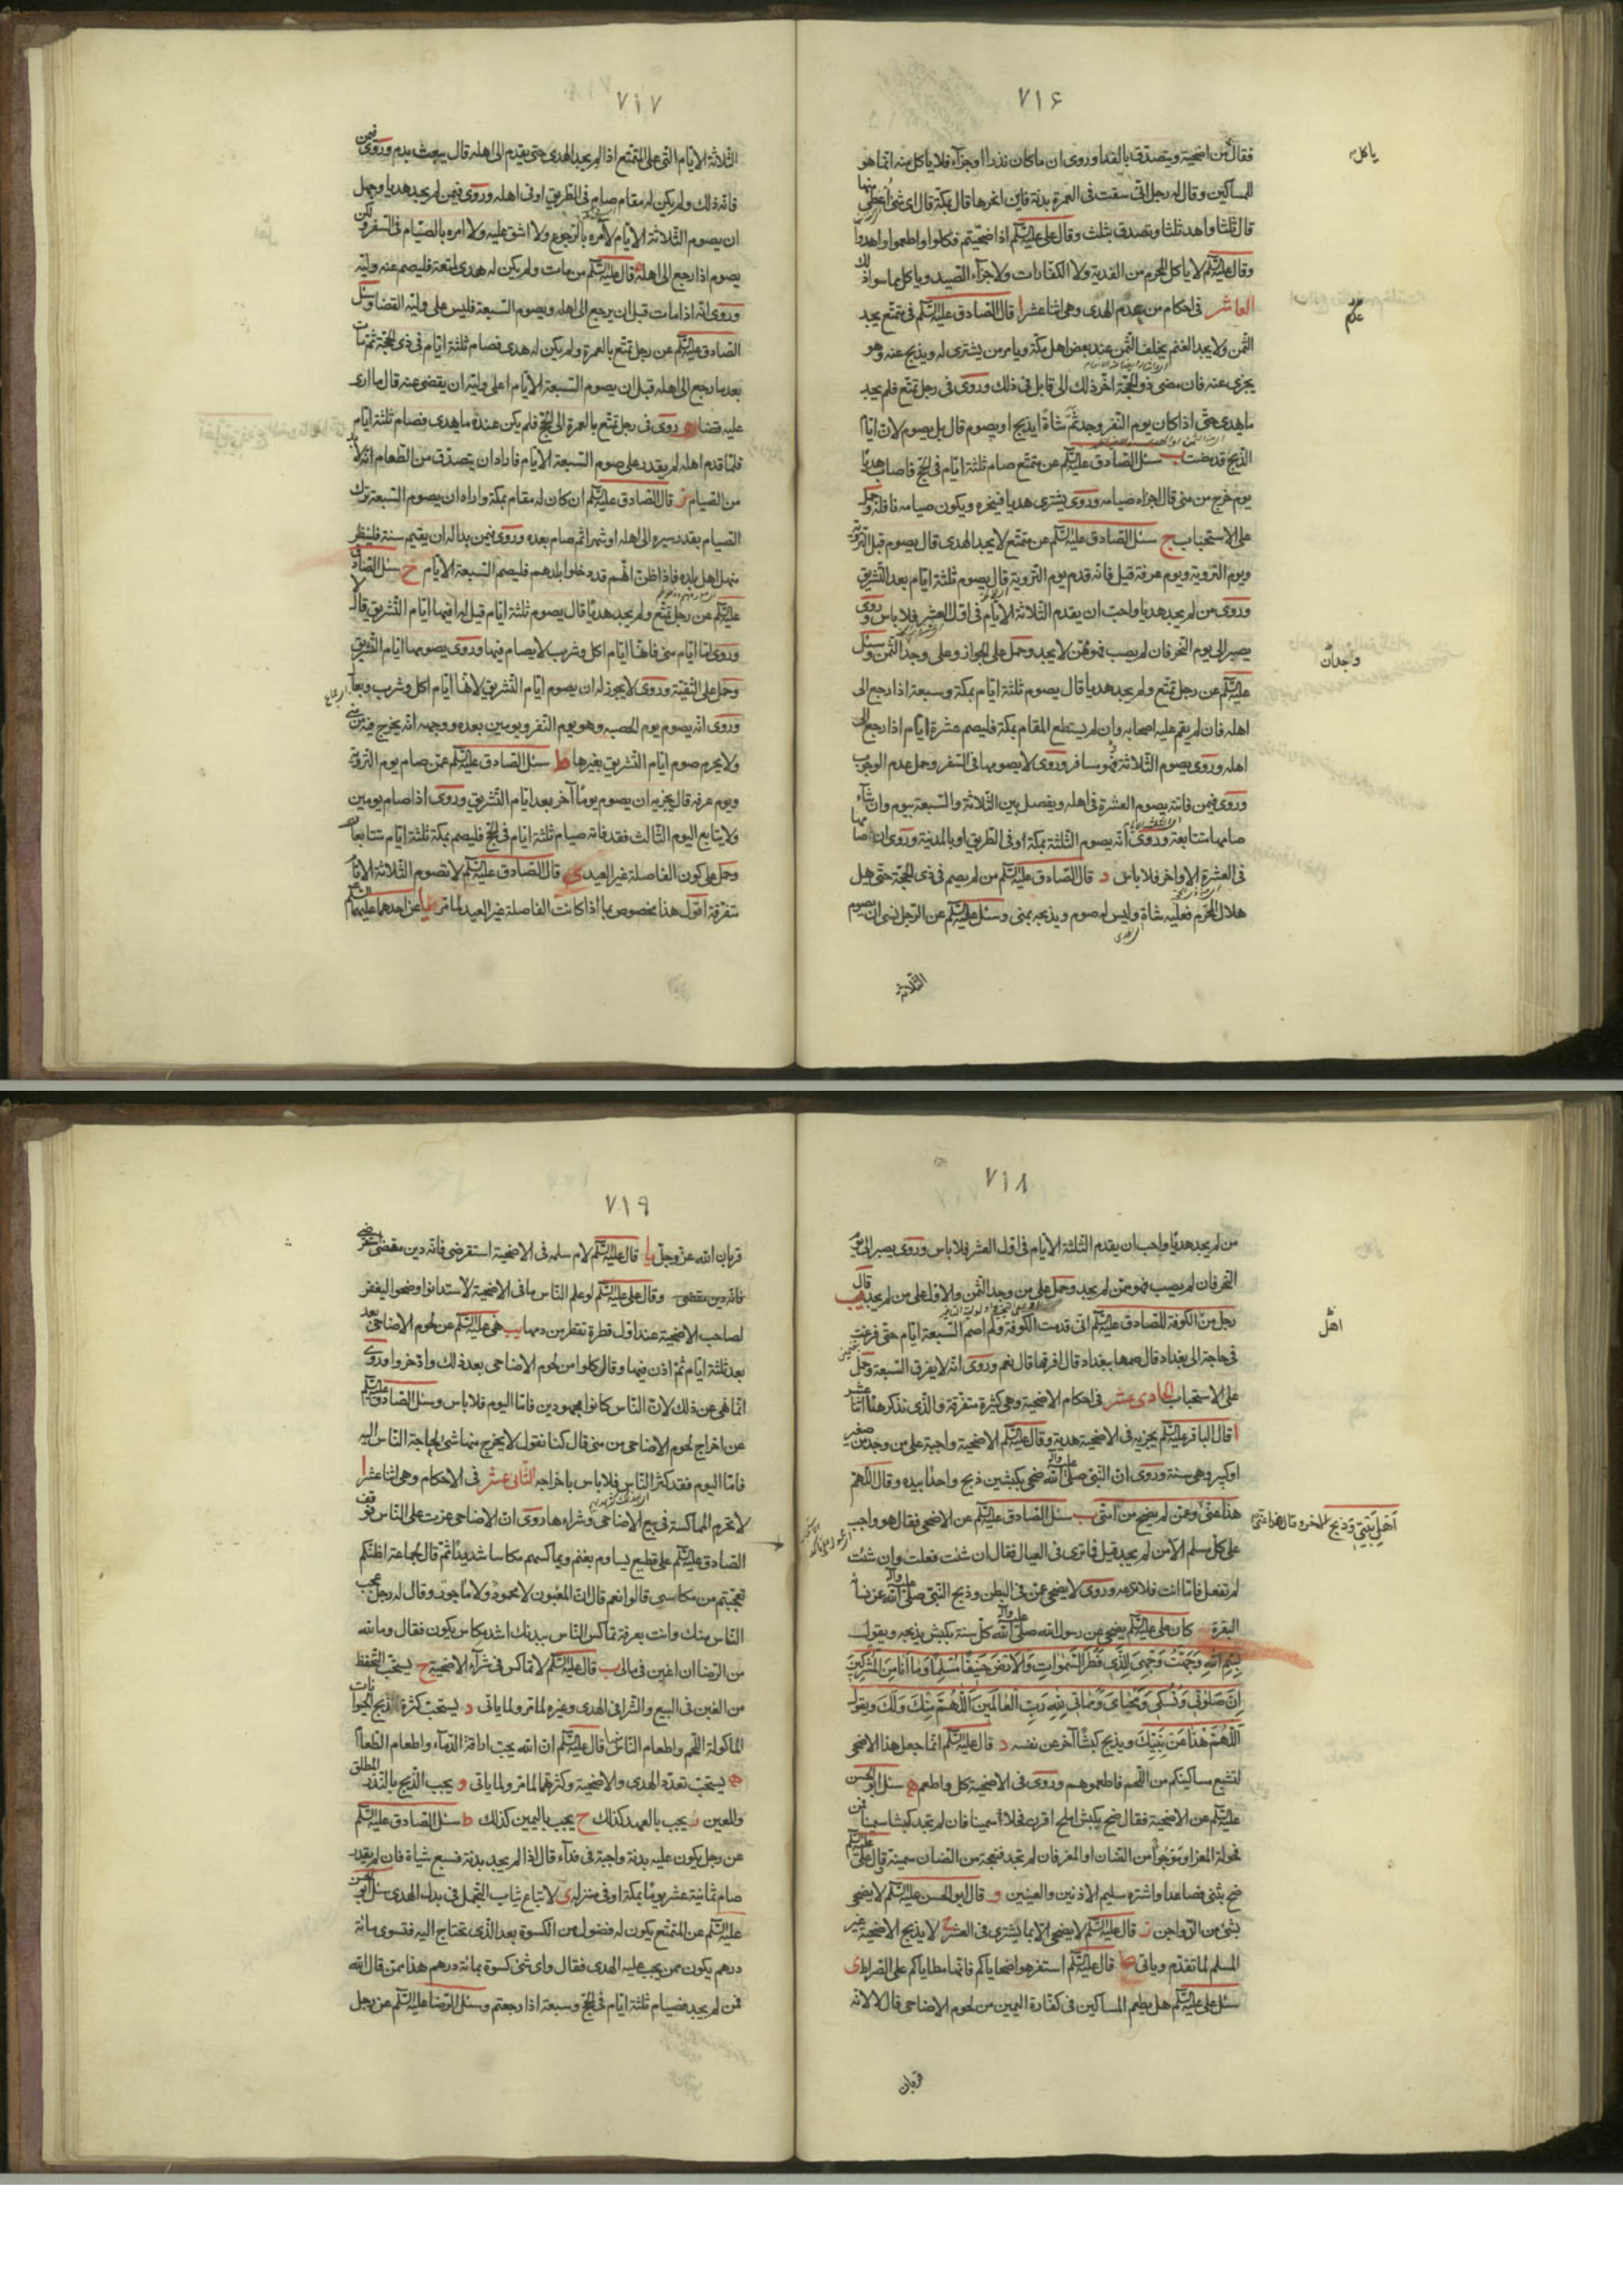 ٧١۶
فقال من اضحية ويتصدق بالفداء وروى ان ما كان نذرا او جزاء فلا ياكل منه انما هو
ياكل
للمساكين وقال له رجل انى سقت فى العمرة بدنة فاين انحرها قال بمكة قال اى شئ اعطى منها
قال ثلثا واهد ثلثا وتصدق بثلث وقال على عليه السلم اذا ضحيتم فكلوا واطعموا واهدوا
وقال عليه السلم لا ياكل المحرم من الفدية ولا الكفارات ولا جزاء الصيد وياكل مما سوا ذلك
العاشر فى احكام من عدم الهدى وهى اثنا عشر ا قال الصادق عليه السلم فى متمتع يجد
عدم
الثمن ولا يجد الغنم يخلف الثمن عند بعض اهل مكة ويامر من يشترى له ويذبح عنه وهو
يجزى عنه فان مضى ذو الحجة اخر ذلك الى قابل فى ذلك وروى فى رجل تمتع فلم يجد
ما يهدى حتى اذا كان يوم النفر وجد ثمن شاة ايذبح او يصوم قال بل يصوم لان ايام
الذبح قد مضت ب سئل الصادق عليه السلم عن متمتع صام ثلثة ايام فى الحج فاصاب هديا
يوم خرج من منى قال اجزاه صيامه وروى يشترى هديا فينحره ويكون صيامه نافلة وحمل
على الاستحباب ج سئل الصادق عليه السلم عن متمتع لا يجد الهدى قال يصوم قبل التروية
ويوم التروية ويوم عرفة قيل فانه قدم يوم التروية قال يصوم ثلثة ايام بعد التشريق
وروى من لم يجد هديا واحب ان يقدم الثلاثة الايام فى اول العشر فلا باس وروى
يصبر الى يوم النحر فان لم يصب فهو ممن لا يجد وحمل على الجواز وعلى وجد الثمن وسئل
واجدان
عليه السلم عن رجل تمتع ولم يجد هديا قال يصوم ثلثة ايام بمكة وسبعة اذا رجع الى
اهله فان لم يقم عليه اصحابه ولم يستطع المقام بمكة فليصم عشرة ايام اذا رجع الى
اهله وروى يصوم الثلاثة وهو مسافر وروى لا يصومها فى السفر وحمل عدم الوجوب
وروى فيمن فاتته يصوم العشرة فى اهله ويفصل بين الثلاثة والسبعة بيوم وان شاء
صامها متتابعة وروى انه يصوم الثلثة بمكة او فى الطريق او بالمدينة وروى ان صامها
فى العشرة الاواخر فلا باس د قال الصادق عليه السلم من لم يصم فى ذى الحجة حتى يهل
هلال المحرم فعليه شاة وليس له صوم ويذبحه بمنى وسئل عليه السلم عن الرجل نسى ان يصوم
الثلاثة
٧١٧
الثلاثة الايام التى على المتمتع اذا لم يجد الهدى حتى يقدم الى اهله قال يبعث بدم وروى فيمن
فاته ذلك ولم يكن له مقام صام فى الطريق او فى اهله وروى فيمن لم يجد هديا وجهل
ان يصوم الثلاثة الايام لا امره بالرجوع ولا اشق عليه ولا امره بالصيام فى السفر ولكن
يصوم اذا رجع الى اهله ه قال عليه السلم من مات ولم يكن له هدى لمتعة فليصم عنه وليه
وروى انه اذا مات قبل ان يرجع الى اهله ويصوم السبعة فليس على وليه القضا وسئل
الصادق عليه السلم عن رجل تمتع بالعمرة ولم يكن له هدى فصام ثلثة ايام فى ذى الحجة ثم مات
بعد ما رجع الى اهله قبل ان يصوم السبعة الايام اعلى وليه ان يقضى عنه قال ما ارى
عليه قضا و روى فى رجل تمتع بالعمرة الى الحج فلم يكن عنده ما يهدى فصام ثلثة ايام
فلما قدم اهله لم يقدر على صوم السبعة الايام فاراد ان يتصدق من الطعام انه لابد
من الصيام ز قال الصادق عليه السلم ان كان له مقام بمكة واراد ان يصوم السبعة ترك
الصيام بقدر سيره الى اهله او شهرا ثم صام بعده وروى فيمن بدا له ان يقيم سنة فلينظر
منهل اهل بلده فاذا ظن انهم قد دخلوا بلدهم فليصم السبعة الايام ح سئل الصادق
عليه السلم عن رجل تمتع ولم يجد هديا قال يصوم ثلثة ايام قيل له افيها ايام التشريق قال لا
وروى اما ايام منى فانها ايام اكل وشرب لا يصام فيها وروى يصومها ايام التشريق
وحمل على التقية وروى لا يجوز له ان يصوم ايام التشريق لانها ايام اكل وشرب وبعال
وروى انه يصوم يوم الحصبه وهو يوم النفر ويومين بعده ووجهه انه يخرج فيه من منى
ولا يحرم صوم ايام التشريق بغيرها ط سئل الصادق عليه السلم عمن صام يوم التروية
ويوم عرفة قال يجزيه ان يصوم يوما آخر بعد ايام التشريق وروى اذا صام يومين
ولا يتابع اليوم الثالث فقد فاته صيام ثلثة ايام فى الحج فليصم بمكة ثلثة ايام متتابعات
وحمل على كون الفاصلة غير العيد ى قال الصادق عليه السلم لا تصوم الثلاثة الايام
متفرقة اقول هذا مخصوص بما اذا كانت الفاصلة غير العيد لما مر يا عن احدهما عليهما السلم
٧١٨
من لم يجد هديا واحب ان يقدم الثلثة الايام فى اول العشر فلا باس وروى يصبر الى يوم
النحر فان لم يصب فهو ممن لم يجد وحمل على من وجد الثمن والاول على من لم يجد يب قال
رجل من اهل الكوفة للصادق عليه السلم انى قدمت الكوفة ولم اصم السبعة ايام حتى فرغت
اهل
فى حاجة الى بغداد قال صمها ببغداد قال افرقها قال نعم وروى انه لا يفرق السبعة وحمل
على الاستحباب الحادى عشر فى احكام الاضحية وهى كثيرة متفرقة والذى نذكر هنا اثنا عشر
ا قال الباقر عليه السلم يجزيه فى الاضحية هدية وقال عليه السلم الاضحية واجبة على من وجد من صغير
او كبير وهى سنة وروى ان النبى صلى الله عليه وآله ضحى بكبشين ذبح واحدا بيده وقال اللهم
هذا عنى وعن من لم يضح من امتى ب سئل الصادق عليه السلم عن الاضحى فقال هو واجب
اهل بيتى وذبح الاخر وقال هذا عنى
على كل مسلم الا من لم يجد قيل فما ترى فى العيال فقال ان شئت فعلت وان شئت
لم تفعل فاما انت فلا تدعه وروى لا يضحى عمن فى البطن وذبح النبى صلى الله عليه وآله عن نسائه
البقرة كان على عليه السلم يضحى عن رسول الله صلى الله عليه وآله كل سنة بكبش يذبحه ويقول
بسم الله وجهت وجهى للذى فطر السموات والارض حنيفا مسلما وما انا من المشركين
ان صلوتى ونسكى ومحياى ومماتى لله رب العالمين اللهم منك ولك ويقول
اللهم هذا عن نبيك ويذبح كبشا آخر عن نفسه د قال عليه السلم انما جعل هذا الاضحى
لتشبع مساكينكم من اللحم فاطعموهم وروى فى الاضحية كل واطعم ه سئل ابو الحسن
عليه السلم عن الاضحية فقال ضح بكبش املح اقرن فحلا سمينا فان لم تجد كبشا سمينا فمن
فحولة المعز او موجوءا من الضان او المعز فان لم تجد فنعجة من الضان سمينة قال على عليه السلم
ضح بثنى فصاعدا واشتره سليم الاذنين والعينين و قال ابو الحسن عليه السلم لا يضحى
بشئ من الدواجن ز قال عليه السلم لا يضحى الا بما يشترى فى العشر ح لا يذبح الاضحية غير
المسلم لما تقدم وياتى ط قال عليه السلم استفرهوا ضحاياكم فانها مطاياكم على الصراط ى
سئل على عليه السلم هل يطعم المساكين فى كفارة اليمين من لحوم الاضاحى قال لا لانه
قربان
٧١٩
قربان الله عز وجل يا قال عليه السلم لام سلمه فى الاضحية استقرضى فانه دين مقضى
فانه دين مقضى وقال على عليه السلم لو علم الناس ما فى الاضحية لاستدانوا وضحوا ليغفر
لصاحب الاضحية عند اول قطرة تقطر من دمها يب نهى عليه السلم عن لحوم الاضاحى بعد
بعد ثلثة ايام ثم اذن فيها وقال كلوا من لحوم الاضاحى بعد ذلك وادخروا وروى
انما نهى عن ذلك لان الناس كانوا مجهودين فاما اليوم فلا باس وسئل الصادق عليه السلم
عن اخراج لحوم الاضاحى من منى قال كنا نقول لا يخرج منها شئ لحاجة الناس اليه
فاما اليوم فقد كثر الناس فلا باس باخراجه الثانى عشر فى الاحكام وهى اثنا عشر ا
لا تحرم المماكسة فى بيع الاضاحى وشراءها روى ان الاضاحى عزت على الناس فوقف
الصادق عليه السلم على قطيع يساوم بغنم ويماكسهم مكاسا شديدا ثم قال لجماعة اظنكم
تعجبتم من مكاسى قالوا نعم قال ان المغبون لا محمود ولا ماجور وقال له رجل عجب
الناس منك وانت بعرفة تماكس الناس ببدنك اشد مكاس يكون فقال وما لله
من الرضا ان اغبن فى مالى ب قال عليه السلم لا تماكس فى شراء الاضحية ج يستحب التحفظ
من الغبن فى البيع والشرا فى الهدى وغيره لما مر ولما ياتى د يستحب كثرة الذبح الحيوانات
الماكولة اللحم واطعام الناس قال عليه السلم ان الله يحب اراقة الدماء واطعام الطعام
ه يستحب تعدد الهدى والاضحية وكثرتهما لما مر ولما ياتى و يجب الذبح بالنذر المطلق
والمعين ز يجب بالعهد كذلك ح يجب باليمين كذلك ط سئل الصادق عليه السلم
عن رجل يكون عليه بدنة واجبة فى فداء قال اذا لم يجد بدنة فسبع شياة فان لم يقدر
صام ثمانية عشر يوما بمكة او فى منزله ى لا تباع ثياب التجمل فى بدل الهدى سئل ابو الحسن
عليه السلم عن المتمتع يكون له فضول من الكسوة بعد الذى يحتاج اليه فتسوى مائة
درهم يكون ممن يجب عليه الهدى فقال واى شئ كسوة بمائة درهم هذا ممن قال الله
فمن لم يجد فصيام ثلثة ايام فى الحج وسبعة اذا رجعتم وسئل الرضا عليه السلم عن رجل